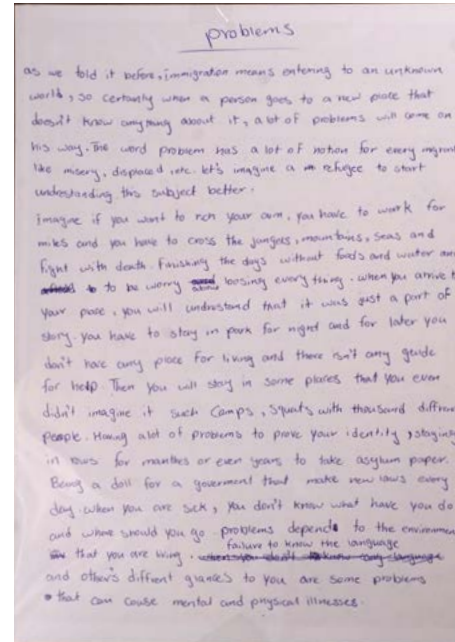 problems
as we told it before, immigration means entering to an unknown
world, so certanly when a person goes to a new place that
doesn't know anything about it, a lot of problems will come on
his way. The word problem has a lot of notion for every migrant
like misery, displaced, etc. let's imagine a refugee to start
understanding this subject better.
imagine if you want to rich your aim, you have to work for
miles and you have to cross the jungles, mountains, seas and
fight with death. Finishing the days without foods and water and
to be worry about loosing every thing. when you arrive to
your place, you will undrestand that it was just a part of
story. you have to stay in park for night and for later you
don't have any place for living and there isn't any guide
for help. Then you will stay in some places that you even
didn't imagine it such Camps, Squats with thousand diffrent
people. Having a lot of problems to prove your identity, staying
in rows for manthes or even years to take asylum paper.
Being a doll for a goverment that make new laws every
day. when you are sick, you don't know what have you do
and where should you go. problems depend to the environment
that you are living. failure to know the language
and other's diffrent glances to you are some problems
that can cause mental and physical illnesses.